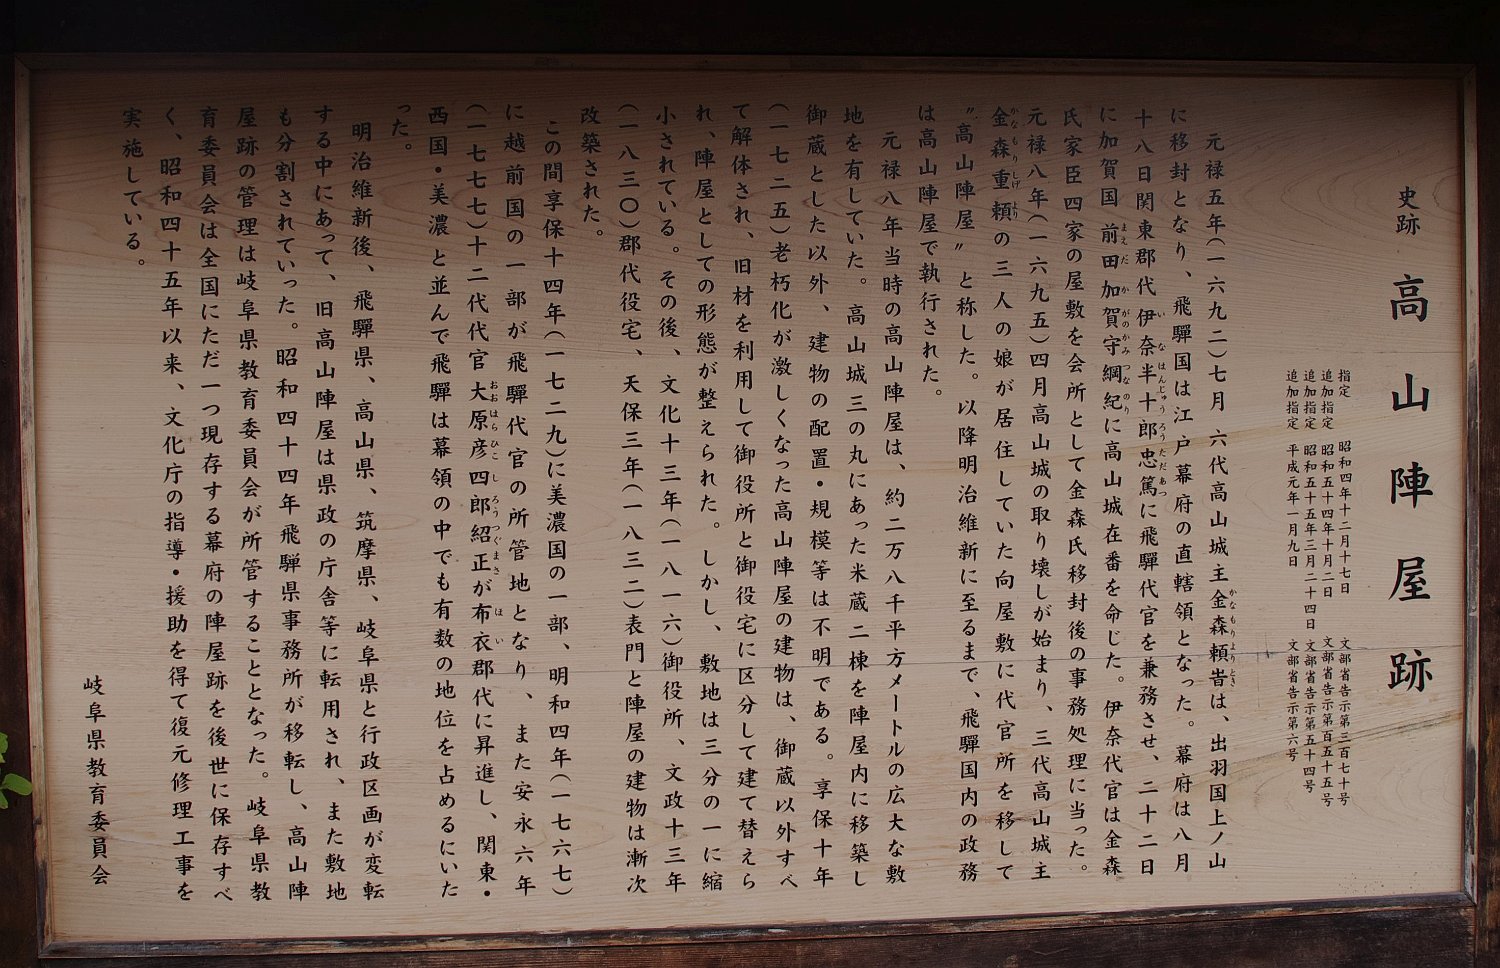 史跡 高山陣屋跡
指定 昭和四年十二月十七日 文部省告示第三百七十号
追加指定 昭和五十四年十月二日 文部省告示第百五十五号
追加指定 昭和五十五年三月二十四日 文部省告示第五十四号
追加指定 平成元年一月九日 文部省告示第六号
元禄五年(一六九二)七月 六代高山城主金森頼旹は、出羽国上ノ山
に移封となり、飛騨国は江戸幕府の直轄領となった。幕府は八月
十八日関東郡代伊奈半十郎忠篤に飛騨代官を兼務させ、二十二日
に加賀国 前田加賀守綱紀に高山城在番を命じた。伊奈代官は金森
氏家臣四家の屋敷を会所として金森氏移封後の事務処理に当った。
元禄八年(一六九五)四月高山城の取り壊しが始まり、三代高山城主
金森重頼の三人の娘が居住していた向屋敷に代官所を移して
〝高山陣屋〟と称した。以降明治維新に至るまで、飛騨国内の政務
は高山陣屋で執行された。
元禄八年当時の高山陣屋は、約二万八千平方メートルの広大な敷
地を有していた。高山城三の丸にあった米蔵二棟を陣屋内に移築し
御蔵とした以外、建物の配置・規模等は不明である。享保十年
(一七二五)老朽化が激しくなった高山陣屋の建物は、御蔵以外すべ
て解体され、旧材を利用して御役所と御役宅に区分して建て替えら
れ、陣屋としての形態が整えられた。しかし、敷地は三分の一に縮
小されている。その後、文化十三年(一八一六)御役所、文政十三年
(一八三〇)郡代役宅、天保三年(一八三二)表門と陣屋の建物は漸次
改築された。
この間享保十四年(一七二九)に美濃国の一部、明和四年(一七六七)
に越前国の一部が飛騨代官の所管地となり、また安永六年
(一七七七)十二代代官大原彦四郎紹正が布衣郡代に昇進し、関東・
西国・美濃と並んで飛騨は幕領の中でも有数の地位を占めるにいた
った。
明治維新後、飛騨県、高山県、筑摩県、岐阜県と行政区画が変転
する中にあって、旧高山陣屋は県政の庁舎等に転用され、また敷地
も分割されていった。昭和四十四年飛騨県事務所が移転し、高山陣
屋跡の管理は岐阜県教育委員会が所管することとなった。岐阜県教
育委員会は全国にただ一つ現存する幕府の陣屋跡を後世に保存すべ
く、昭和四十五年以来、文化庁の指導・援助を得て復元修理工事を
実施している。
岐阜県教育委員会